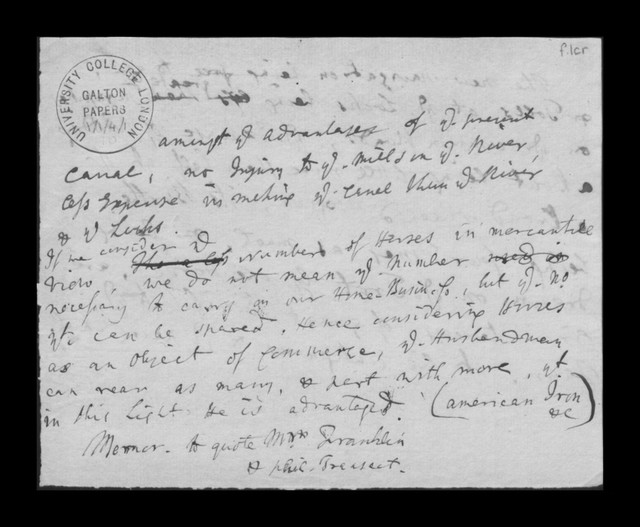 f.1cr
UNIVERSITY COLLEGE LONDON
GALTON
PAPERS
1/1/4/1
amongst ye advantages of ye present
Canal, no Injury to ye Mills on ye River,
less Expense in making ye Canal than ye River
& ye Locks.
If we consider ye
numbers of Horses in mercantile
view, we do not mean ye number used in
necessary to carry on our Home Business, but ye no
yt can be spared. Hence considering Horses
as an object of Commerce, ye Husbandman
can rear as many, & part with more, yt
in this Light He is advantaged. (american Iron
&c)
Memor. to quote Mr Franklin
& phil. Transact.